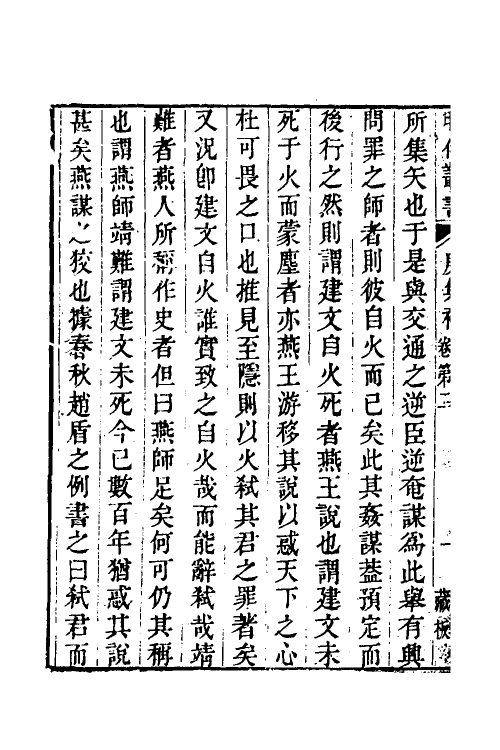 所集矢也于是與交通之逆臣逆奄謀爲此舉有興
問罪之師者則彼自火而已矣此其姦謀葢預定而
後行之然則謂建文自火死者燕王說也謂建文未
死于火而蒙塵者亦燕王游移其說以惑天下之心
杜可畏之口也推見至隱則以火弑其君之罪著矣
又況卽建文自火誰實致之自火哉而能辭弑哉靖
難者燕人所作史者但曰燕師足矣何可仍其稱
也謂燕師靖難謂建文未死今已數百年猶惑其說
甚矣燕謀之狡也據春秋趙盾之例書之曰弑君而
卷第二
藏板